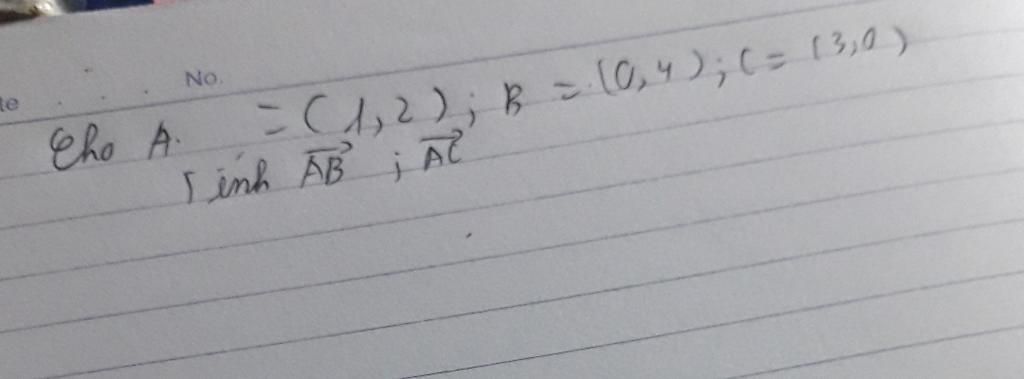 te No.
Cho A. = (1,2); B = (0,4); C = (3,0)
Tính \overrightarrow{AB} ; \overrightarrow{AC}